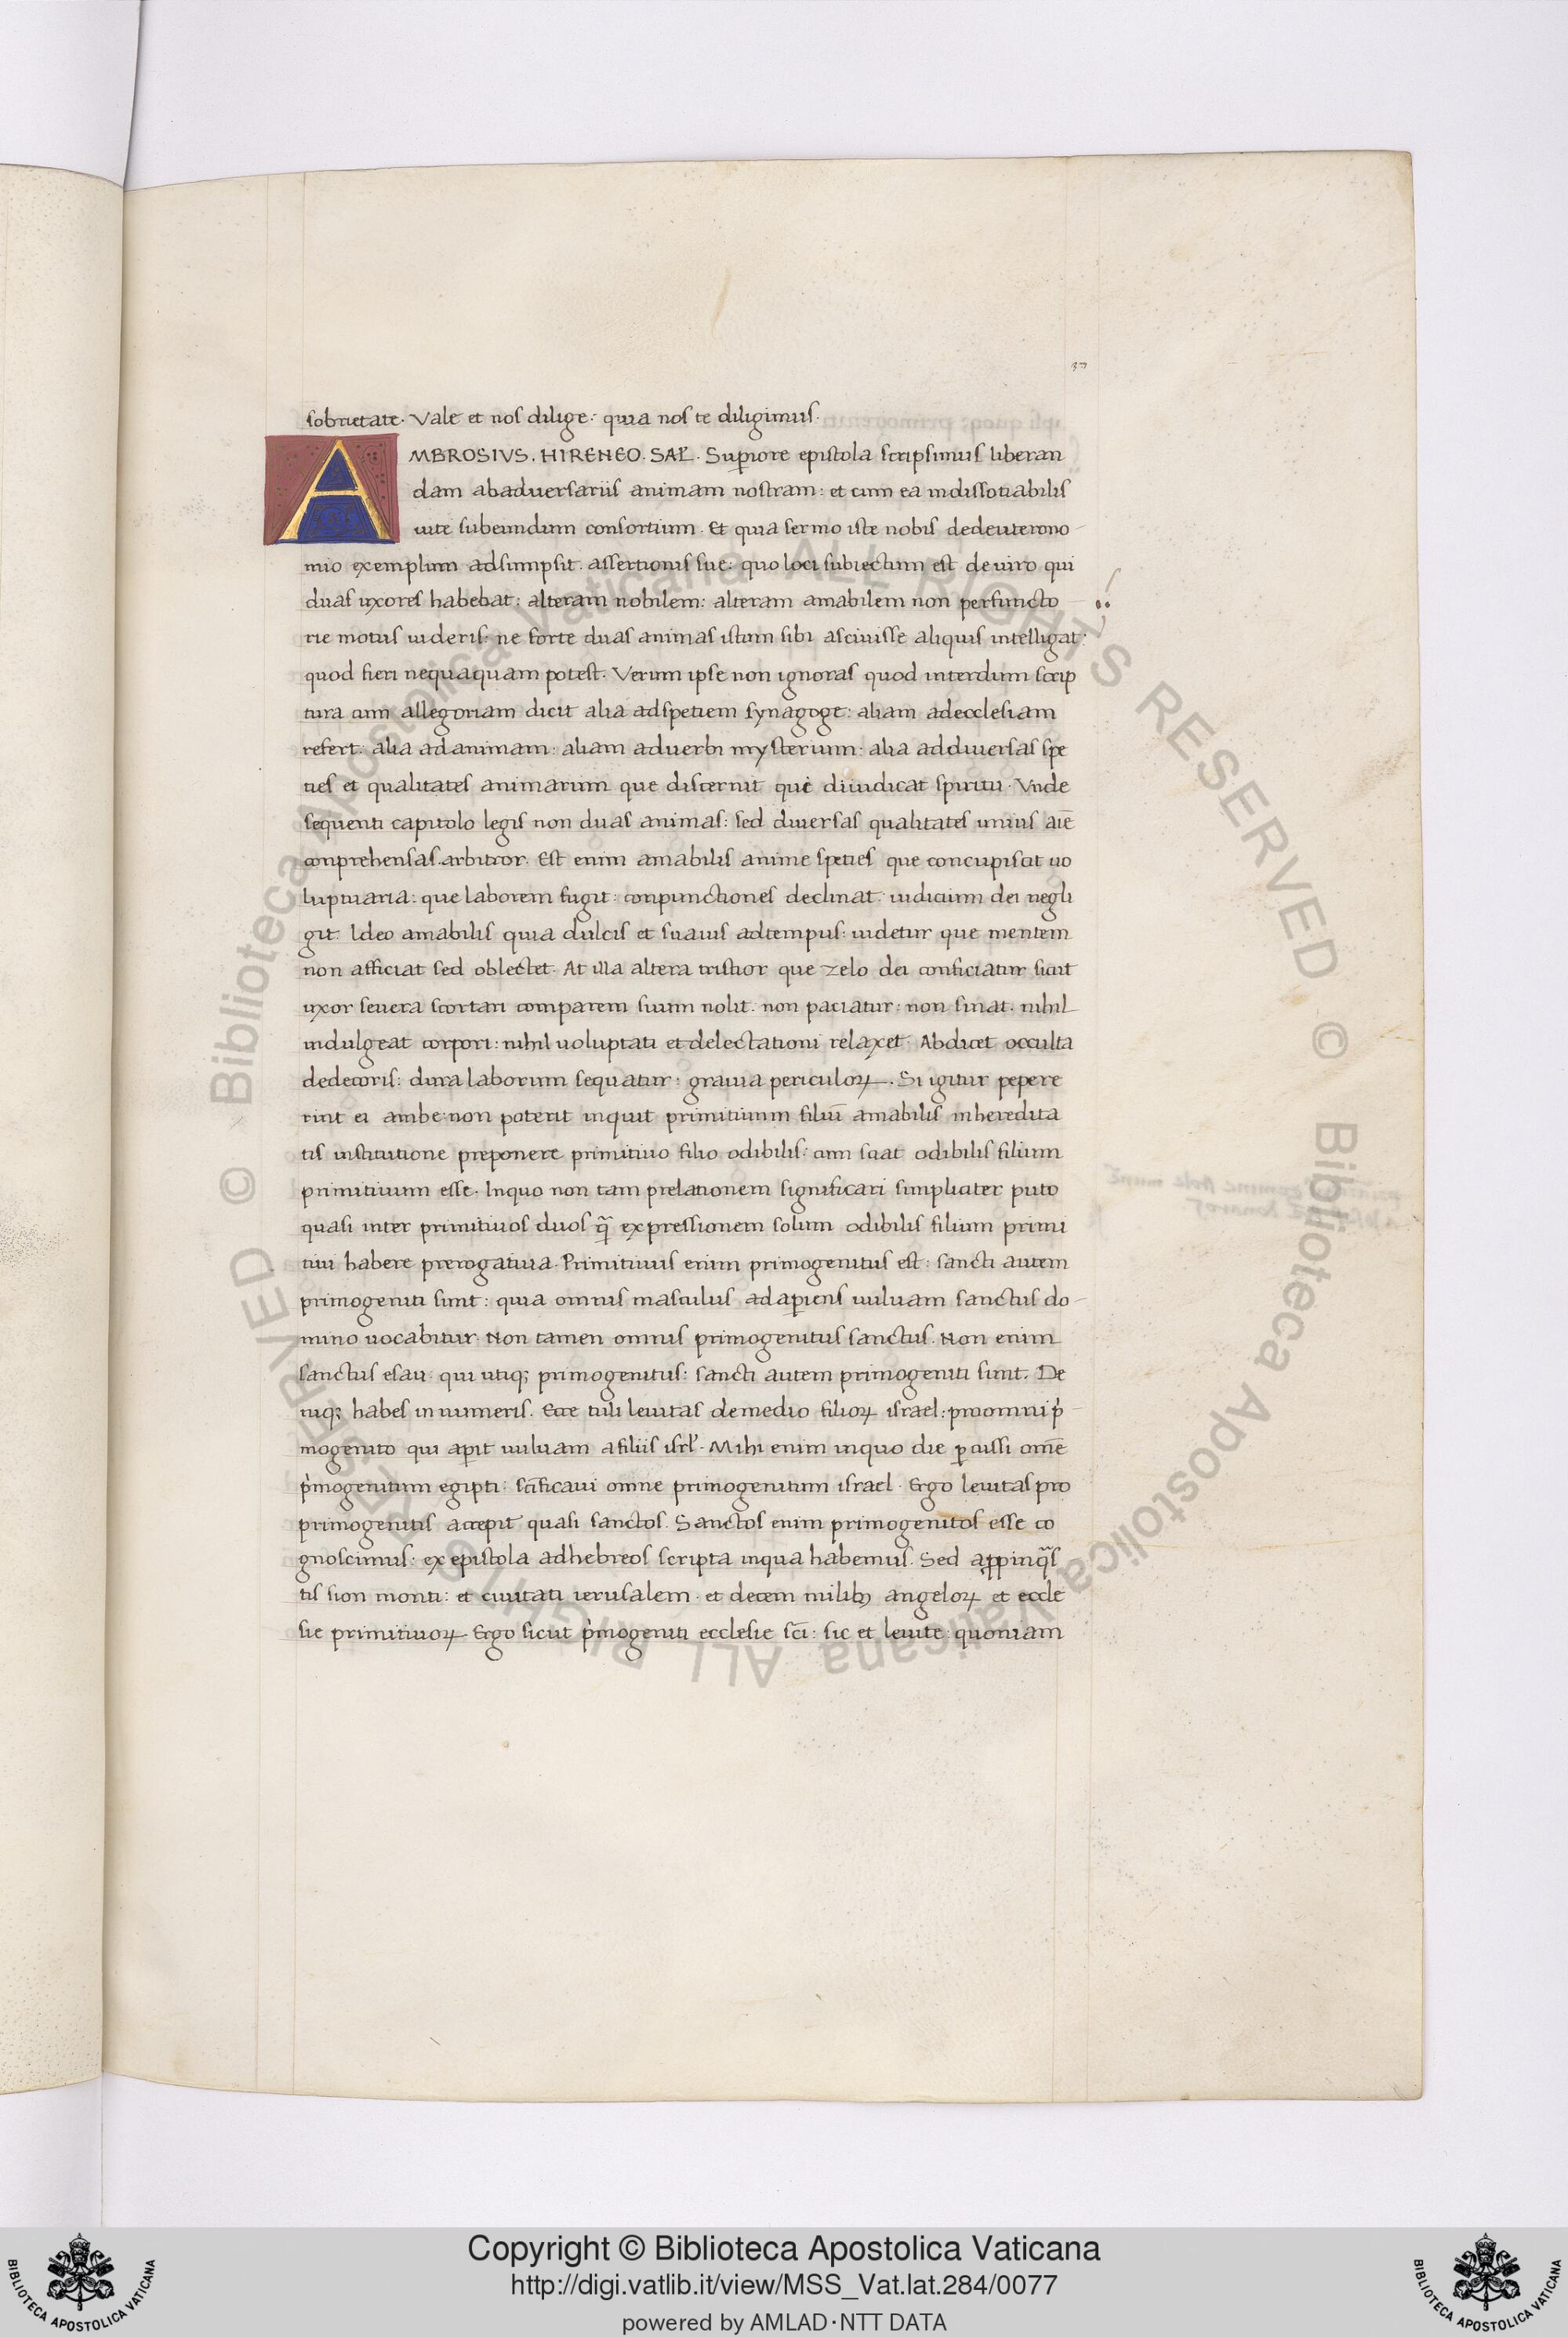 37
sobrietate. Vale et nos dilige: quia nos te diligimus.
AMBROSIVS. HIRENEO. SAL̃. Supiore epistola scripsimus liberan
dam abaduersariis animam nostram: et cum ea indissotiabilis
uite subeundum consortium. Et quia sermo iste nobis dedeuterono
mio exemplum adsumpsit. assertionis sue: quo loci subiectum est de uiro qui
duas uxores habebat: alteram nobilem: alteram amabilem non perfuncto
rie motus uideris: ne forte duas animas istum sibi asciuisse aliquis intelligat:
quod fieri nequaquam potest. Verum ipse non ignoras quod interdum scrip
tura cum allegoriam dicit alia adspetiem synagoge: aliam adecclesiam
refert: alia adanimam: aliam aduerbi mysterium: alia addiuersas spe
ties et qualitates animarum que discernit que diiudicat spiritu. Vnde
sequenti capitolo legis non duas animas: sed diuersas qualitates unius aiē
conprehensas arbitror. Est enim amabilis anime speties que concupiscit uo
luptuaria: que laborem fugit: conpunctiones declinat: iudicium dei negli
git. Ideo amabilis quia dulcis et suauis adtempus: uidetur que mentem
non afficiat sed oblectet. At illa altera tristior que zelo dei conficiatur sicut
uxor seuera scortari comparem suum nolit. non paciatur: non sinat. nihil
indulgeat corpori: nihil uoluptati et delectationi relaxet. Abdicet occulta
dedecoris: dura laborum sequatur: grauia periculoꝝ. Si igitur pepere
rint ei ambe: non poterit inquit primitiuum filiū amabilis inheredita
tis institutione preponere primitiuo filio odibilis: cum sciat odibilis filium
primitiuum esse. Inquo non tam prelationem significari simpliciter puto
quasi inter primitiuos duos q̃ expressionem solum odibilis filium primi
tiui habere prerogatiua. Primitiuus enim primogenitus est: sancti autem
primogeniti sunt: quia omnis masculus adapiens uuluam sanctus do
mino uocabitur. Non tamen omnis primogenitus sanctus. Non enim
sanctus esau: qui utiq; primogenitus: sancti autem primogeniti sunt. De
niq; habes innumeris. Ecce tuli leuitas demedio filioꝝ israel: proomni p̍
mogenito qui apit uuluam afiliis isrł. Mihi enim inquo die ꝑcussi omē
p̍mogenitum egipti: scīficaui omne primogenitum israel. Ergo leuitas pro
primogenitis accepit quasi sanctos. Sanctos enim primogenitos esse co
gnoscimus: ex epistola adhebreos scripta inqua habemus. Sed aꝓpinq̃s
tis sion monti: et ciuitati ierusalem. et decem milib; angeloꝝ et eccle
sie primitiuoꝝ. Ergo sicut p̍mogeniti ecclesie scī: sic et leuite: quoniam
© Biblioteca Apostolica Vaticana ALL RIGHTS RESERVED © Biblioteca Apostolica Vaticana ALL RIGHTS RESERVED
Copyright © Biblioteca Apostolica Vaticana
http://digi.vatlib.it/view/MSS_Vat.lat.284/0077
powered by AMLAD·NTT DATA
BIBLIOTECA APOSTOLICA VATICANA
BIBLIOTECA APOSTOLICA VATICANA